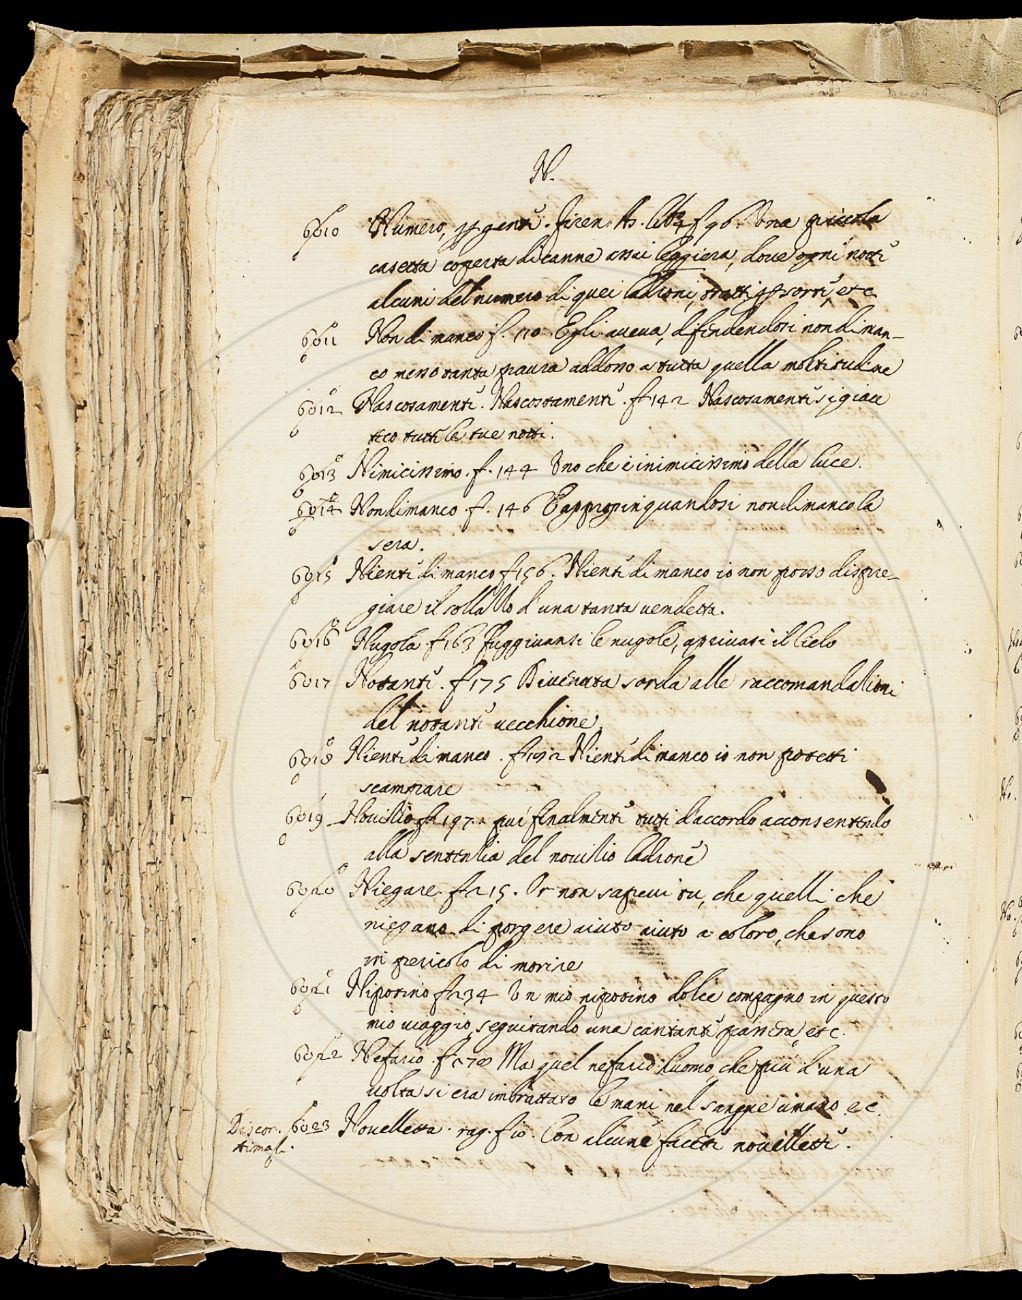 N.
6010 Numero, per gente. Firen. As. lib. 4 f. 96. Una piccola
casetta coperta di canne assai leggiera, dove ogni notte
alcuni del numero di quei ladroni, tratti per sorte, etc.
6011 Non di manco f. 110 Egli aveva, difendendosi non di man-
co messo tanta paura addosso a tutta quella moltitudine
6012 Nascosamente. Nascostamente. f. 142 Nascosamente si giace
tico tutte le tue notti.
6013 Nimicissimo. f. 144 Uno che è inimicissimo della luce.
6014 Nondimanco f. 146 E appropinquandosi nondimanco la
sera.
6015 Niente di manco f. 156. Niente di manco io non posso dispre-
giare il sollazzo d'una tanta vendetta.
6016 Nugola f. 163 Fuggivansi le nugole, aprivasi il Cielo
6017 Notante. f. 175 Divenuta sorda alle raccomandazioni
del notante vecchione
6018 Niente di manco. f. 192 Niente di manco io non potetti
scampare
6019 Novizio f. 197. fui finalmente tutti d'accordo acconsentendo
alla sentenzia del novizio ladrone
6020 Niegare. f. 215. Or non sapevi tu, che quelli che
niegano di porgere aiuto aiuto a coloro, che sono
in pericolo di morire
6021 Nipotino f. 234 Un mio nipotino dolce compagno in questo
mio viaggio, seguitando una cantante passera etc.
6022 Nefario. f. 270 Ma quel nefario huomo che più d'una
volta si era imbrattato le mani nel sangue umano. ec.
Discor. 6023 Novelletta. rag. f. 10. Con alcune facete novellette.
Animal.